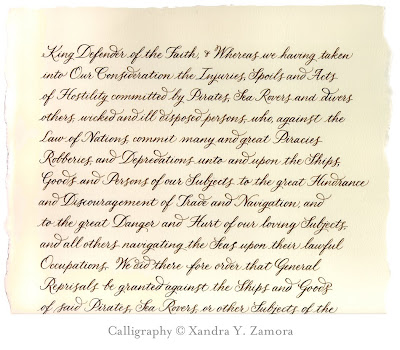 King Defender of the Faith, & Whereas we having taken
into Our Consideration the Injuries, Spoils and Acts
of Hostility committed by Pirates, Sea Rovers and divers
others, wicked and ill disposed persons, who, against the
Law of Nations, commit many and great Piracies
Robberies, and Depredations unto and upon the Ships,
Goods and Persons of our Subjects to the great Hindrance
and Discouragement of Trade and Navigation, and
to the great Danger and Hurt of our loving Subjects,
and all others navigating the Seas upon their lawful
Occupations. We did there fore order that General
Reprisals be granted against the Ships and Goods
of said Pirates, Sea Rovers or other Subjects of the
Calligraphy © Xandra Y. Zamora